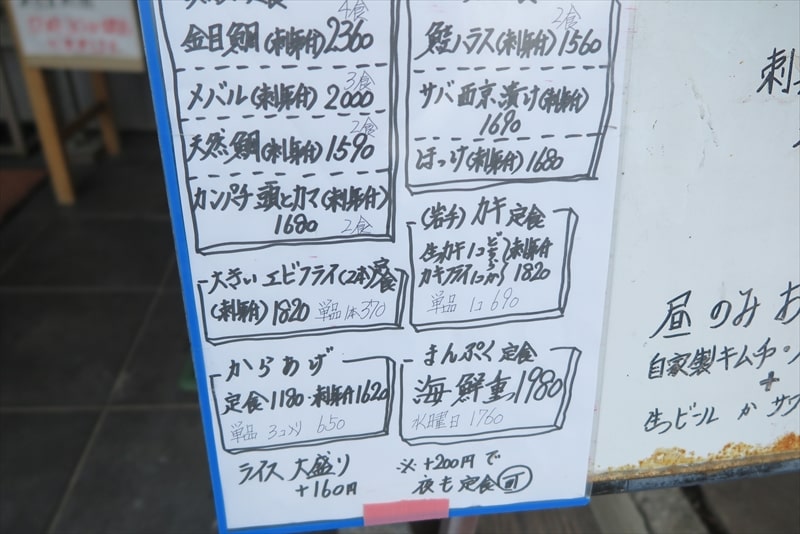 4食
金目鯛(刺身付)2360
3食
メバル(刺身付)2000
2食
天然鯛(刺身付)1590
カンパチ頭とカマ(刺身付)
1680 2食
2食
鮭ハラス(刺身付)1560
サバ西京漬け(刺身付)
1690
ほっけ(刺身付)1680
大きい エビフライ(2本)定食
(刺身付)1820 単品1本370
(岩手)カキ定食
生カキ1コ どちらか 刺身付
カキフライ1コ 1820
単品 1コ 690
からあげ
定食1180・刺身付1620
単品 3コ入り 650
まんぷく定食
海鮮重 1980
水曜日 1760
ライス 大盛り
+160円
※+200円で
夜も定食 可
刺
昼のみ お
自家製キムチ・
+
生ビール か サワ